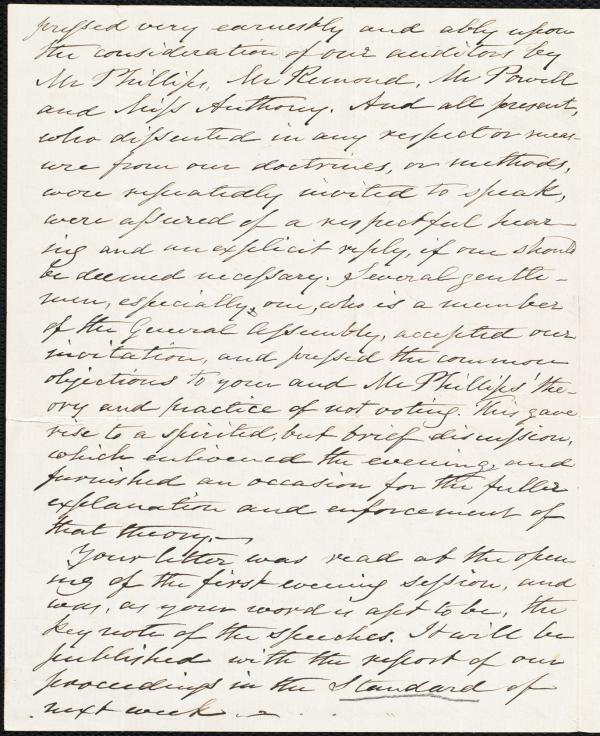 pressed very earnestly and ably upon
the consideration of our auditors by
Mr Phillips, Mr Remond, Mr Powell
and Miss Anthony. And all present,
who dissented in any respect or meas-
ure from our doctrines, or methods,
were repeatedly invited to speak,
were assured of a respectful hear-
ing and an explicit reply, if one should
be deemed necessary. Several gentle-
men, especially, one, who is a member
of the General Assembly, accepted our
invitation, and pressed the common
objections to your and Mr Phillips' the-
ory and practice of not voting. This gave
rise to a spirited, but brief discussion,
which enlivened the evening, and
furnished an occasion for the fuller
explanation and enforcement of
that theory.—
Your letter was read at the open-
ing of the first evening session, and
was, as your word is apt to be, the
key note of the speeches. It will be
published with the report of our
proceedings in the Standard of
next week —.